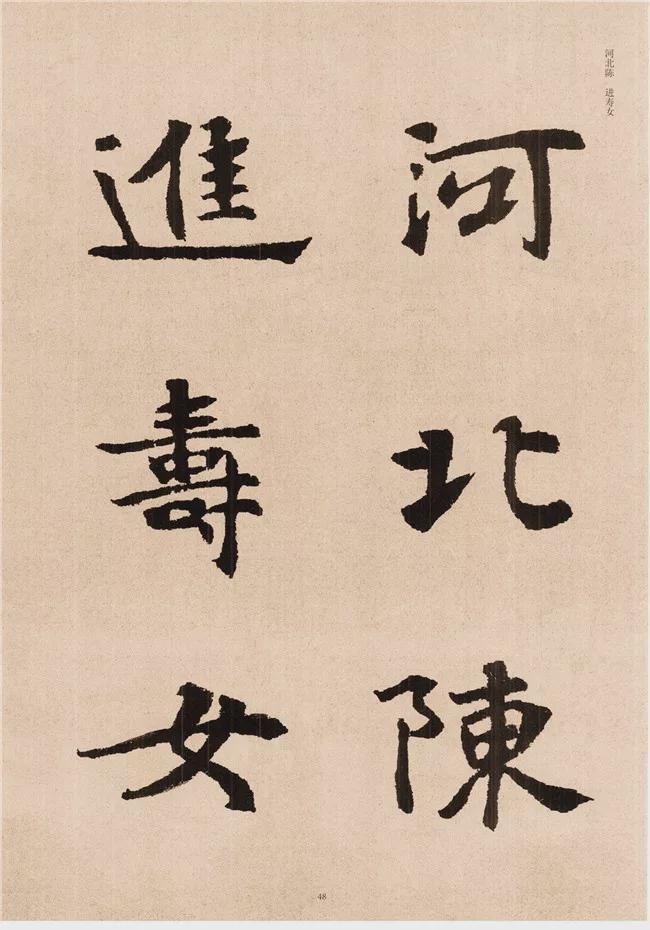 河北陈 进寿女
河北陳
進壽女
48